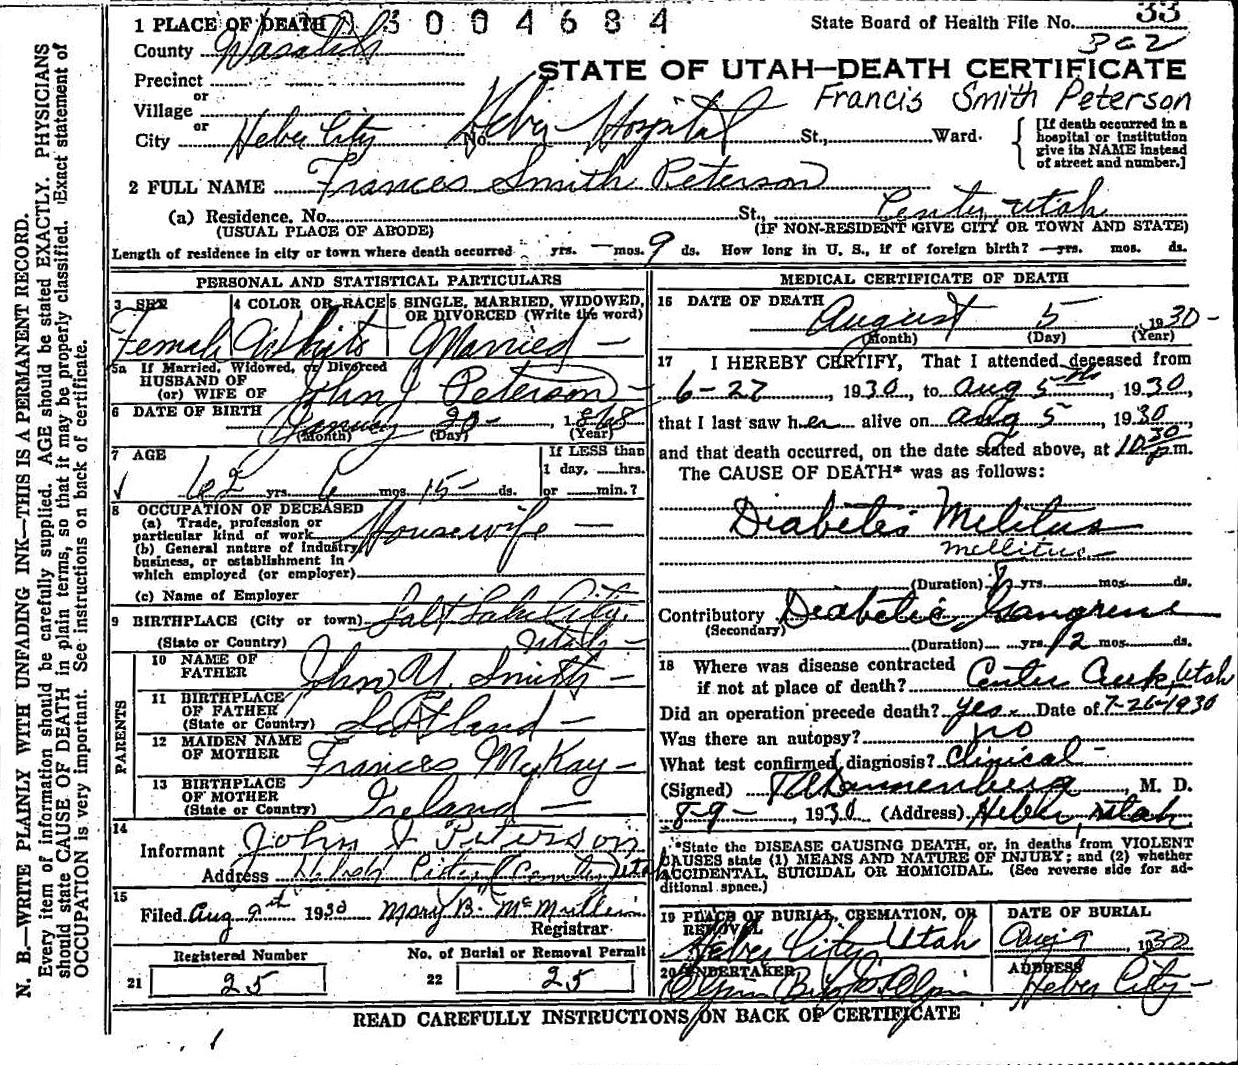 N. B.—WRITE PLAINLY WITH UNFADING INK—THIS IS A PERMANENT RECORD.
Every item of information should be carefully supplied. AGE should be stated EXACTLY. PHYSICIANS
should state CAUSE OF DEATH in plain terms, so that it may be properly classified. Exact statement of
OCCUPATION is very important. See instructions on back of certificate.
1 PLACE OF DEATH 3004684 State Board of Health File No. 33
County Wasatch 362
Precinct
or
STATE OF UTAH—DEATH CERTIFICATE
Village
or
Francis Smith Peterson
City Heber City No. Heber Hospital St., Ward.
[If death occurred in a
hospital or institution
give its NAME instead
of street and number.]
2 FULL NAME Frances Smith Peterson
(a) Residence. No. St., Center, Utah
(USUAL PLACE OF ABODE) (IF NON-RESIDENT GIVE CITY OR TOWN AND STATE)
Length of residence in city or town where death occurred yrs. — mos. 9 ds. How long in U. S., if of foreign birth? — yrs. mos. ds.
PERSONAL AND STATISTICAL PARTICULARS
3 SEX 4 COLOR OR RACE 5 SINGLE, MARRIED, WIDOWED,
OR DIVORCED (Write the word)
Female White Married —
5a If Married, Widowed, or Divorced
HUSBAND OF
(or) WIFE OF John J Peterson —
6 DATE OF BIRTH January 20 — , 1868
(Month) (Day) (Year)
7 AGE If LESS than
1 day, hrs.
62 yrs. 6 mos. 15 — ds. or min.?
8 OCCUPATION OF DECEASED
(a) Trade, profession or
particular kind of work Housewife —
(b) General nature of Industry,
business, or establishment in
which employed (or employer)
(c) Name of Employer
9 BIRTHPLACE (City or town) Salt Lake City,
(State or Country) Utah —
PARENTS
10 NAME OF
FATHER John Y. Smith —
11 BIRTHPLACE
OF FATHER
(State or Country) Scotland —
12 MAIDEN NAME
OF MOTHER Frances McKay —
13 BIRTHPLACE
OF MOTHER
(State or Country) Ireland —
14
Informant John J Peterson
Address
15
Filed Aug 9th 1930 Mary B. McMullin
Registrar
Registered Number No. of Burial or Removal Permit
21 25 22 25
MEDICAL CERTIFICATE OF DEATH
16 DATE OF DEATH
August 5 1930 -
(Month) (Day) (Year)
17 I HEREBY CERTIFY, That I attended deceased from
6-27, 1930, to Aug 5th, 1930,
that I last saw her alive on Aug 5, 1930,
and that death occurred, on the date stated above, at 10 30 p.m.
The CAUSE OF DEATH* was as follows:
Diabetes Melitus
mellitus
(Duration) yrs. mos. ds.
Contributory Diabetic Gangrene
(Secondary)
(Duration) yrs. 2 mos. ds.
18 Where was disease contracted
if not at place of death? Center Creek, Utah
Did an operation precede death? yes. Date of 7-26-1930
Was there an autopsy? no
What test confirmed diagnosis? Clinical -
(Signed) Dannenberg, M. D.
8-9-, 1930 (Address) Heber, Utah
*State the DISEASE CAUSING DEATH, or, in deaths from VIOLENT
CAUSES state (1) MEANS AND NATURE OF INJURY; and (2) whether
ACCIDENTAL, SUICIDAL OR HOMICIDAL. (See reverse side for ad-
ditional space.)
19 PLACE OF BURIAL, CREMATION, OR
REMOVAL DATE OF BURIAL
Heber City, Utah Aug 9, 1930
20 UNDERTAKER ADDRESS
Olpin Heber City —
READ CAREFULLY INSTRUCTIONS ON BACK OF CERTIFICATE